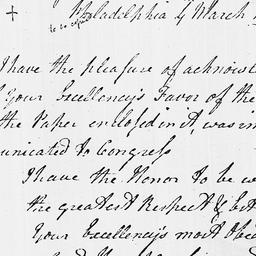 Philadelphia 4 March
to be copied
I have the pleasure of acknowl
Your Excellency's Favor of the
the Paper enclosed in it, was im
unicated to Congress
I have the Honor to be w
the greatest Respect & Est
Your Excellency's most Obed